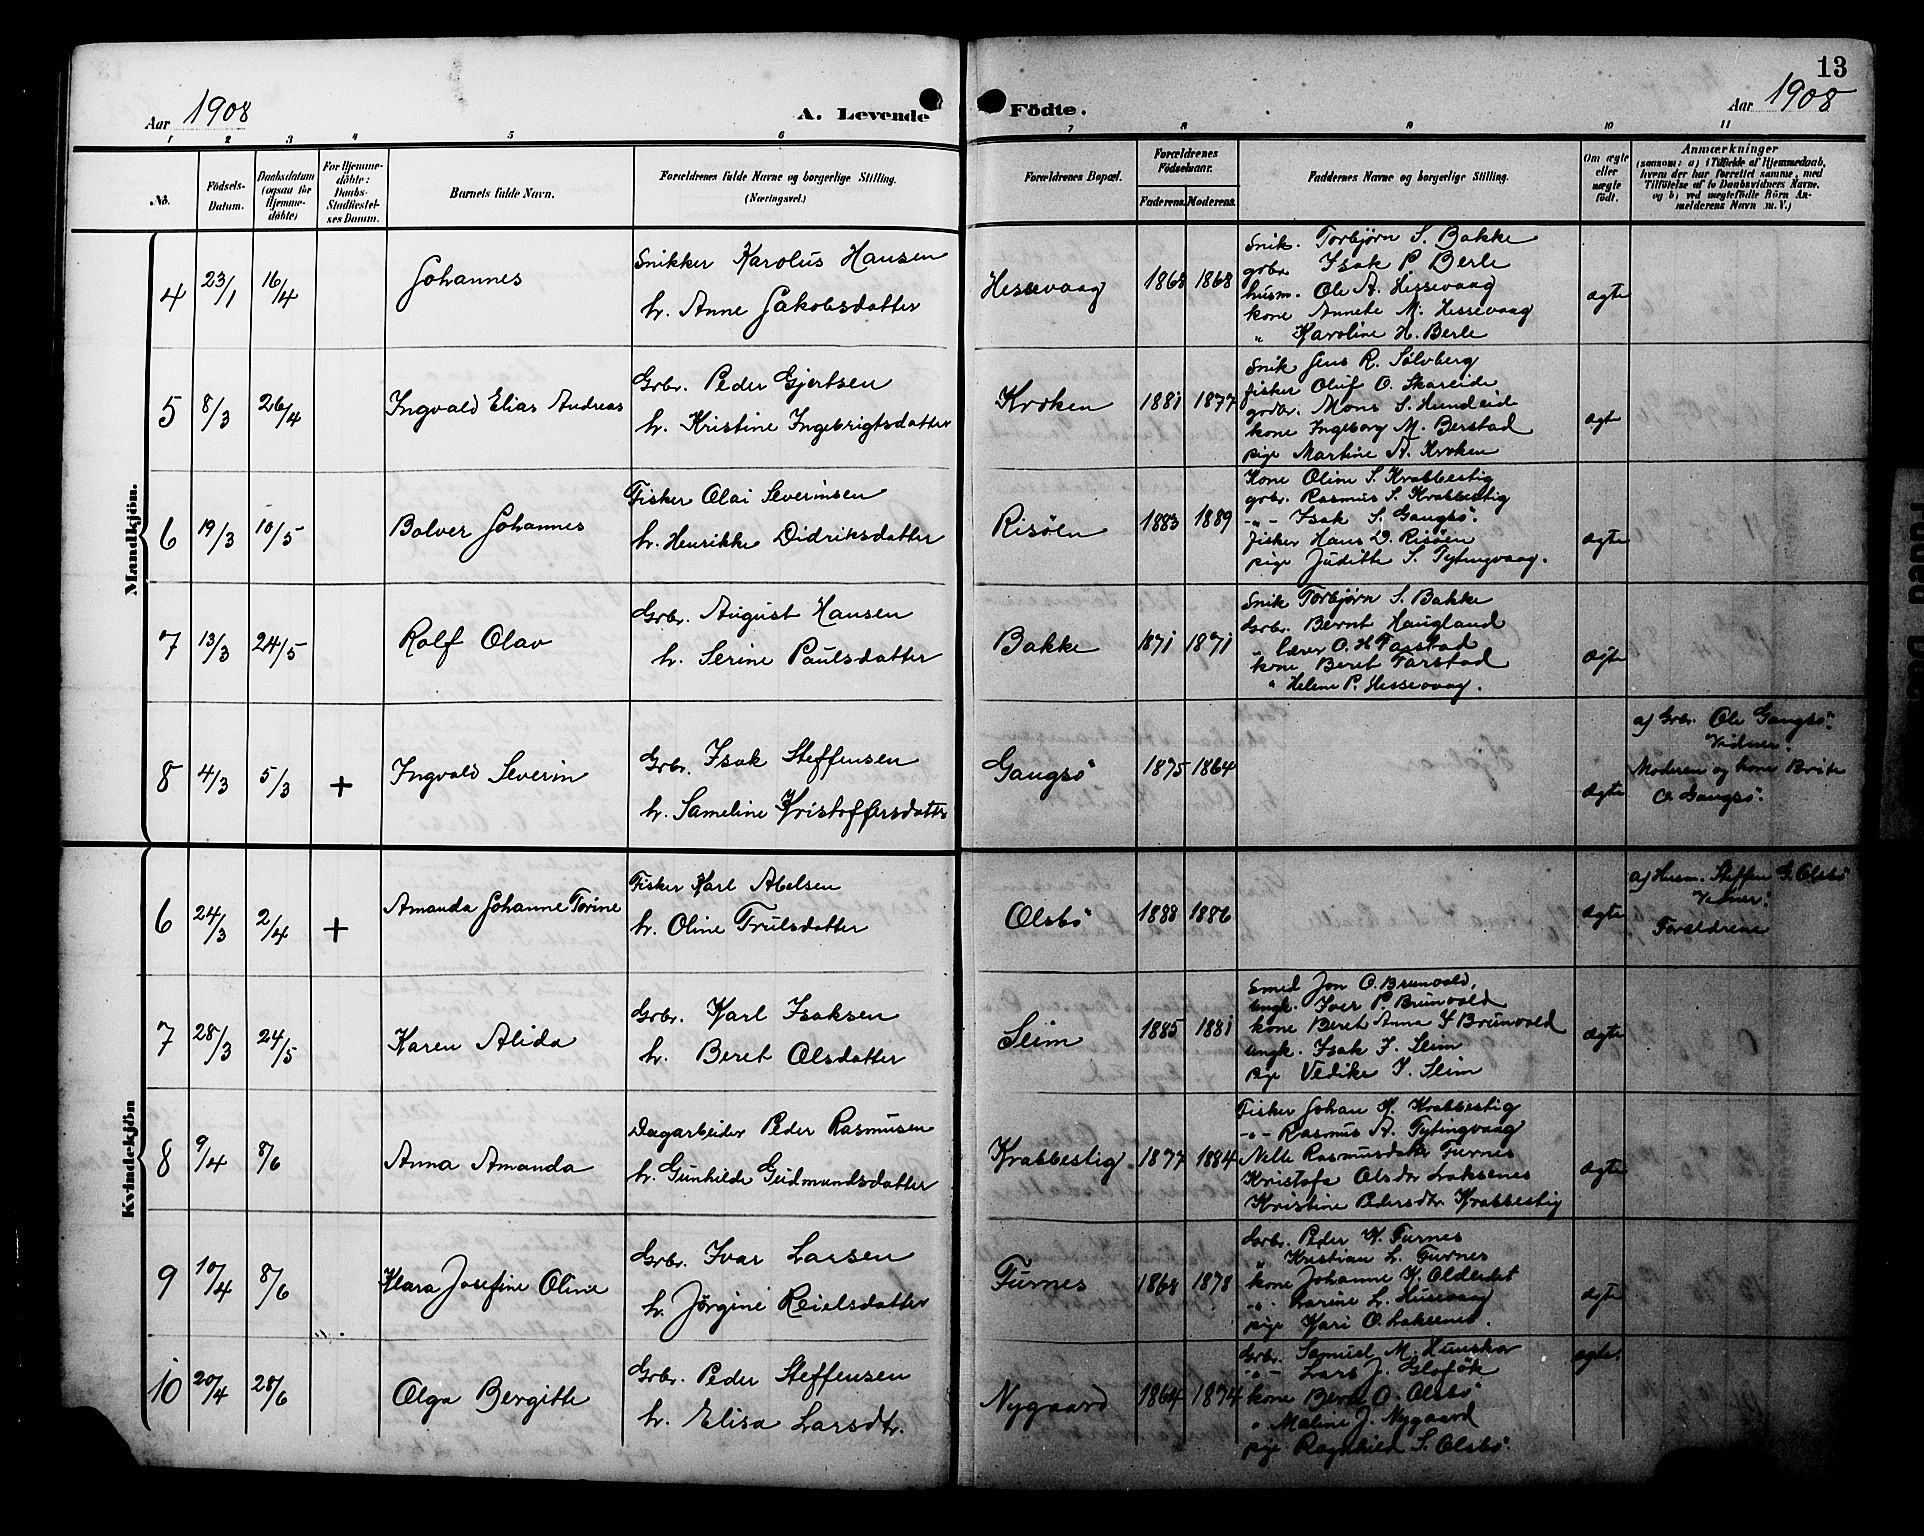 13
Aar 1908
A. Levende Födte.
Aar 1908
1 2 3 4 5 6 7 8 9 10 11
No.
Födsels-Datum.
Daabsdatum (ogsaa for Hjemme-döbte)
For Hjemme-döbte: Daabs-Stadfæstel-ses Datum.
Barnets fulde Navn.
Forældrenes fulde Navne og borgerlige Stilling.
(Næringsvei.)
Forældrenes Bopæl.
Forældrenes Födselsaar.
Faderens. Moderens.
Faddernes Navne og borgerlige Stilling.
Om ægte eller uægte födt.
Anmærkninger
(saasom: a) i Tilfælde af Hjemmedaab, hvem der har forrettet samme, med Tilföielse af to Daabsvidners Navne, og b) ved uægtefödte Börn Anmelderens Navn m. V.)
Mandkjön.
4 23/1 16/4 Johannes
Snikker Karolus Hansen
h. Anne Jakobsdatter
Hessevaag 1868 1868
Snik. Torbjørn S. Bakke
grbr. Isak P. Berle
husm. Ole A. Hessevaag
kone Annete M. Hessevaag
" Karoline H. Berle
ægte
5 8/3 26/4 Ingvald Elias Andreas
Grbr. Peder Gjertsen
h. Kristine Ingebrigtsdatter
Kroken 1881 1877
Snik Jens R. Sölvberg
fisker Oluf O. Skareide
grdbr. Mons S. Hundeid
kone Ingeborg M. Berstad
pige Martine A. Kroken
ægt
6 19/3 10/5 Bolver Johannes
Fisker Olai Severinsen
h. Henrikke Didriksdatter
Risöen 1883 1889
Kone Oline S. Krabbestig
grbr. Rasmus S. Krabbestig
-"- Isak S. Gangsö.
fisker Hans D. Risöen
pige Juditte S. Tytingvaag.
ægte
7 13/3 24/5 Rolf Olav
Grbr. August Hansen
h. Serine Paulsdatter
Bakke 1871 1871
Snik Torbjørn S. Bakke
Grbr. Bernt Haugland
" lærer O. H. Tarstad
kone Beret Tarstad
" Helene P. Hessevaag.
ægte
8 4/3 5/3 + Ingvald Severin
Grbr. Isak Steffensen
h. Sameline Kristoffersdatter
Gangsö 1875 1864
ægte
af Grbr. Ole Gangsö.
Vidner.
Moderen og kone Brite
O. Gangsö.
Kvindekjön
6 24/3 2/4 + Amanda Johanne Torine
Fisker Karl Abelsen
h. Oline Trulsdatter
Olsbö 1888 1886
ægte
af Husm. Steffen G. Olsbö
Vidner:
Foreldrene
7 28/3 24/5 Karen Alida
Grbr. Karl Isaksen
h. Beret Olsdatter
Seim 1885 1881
Smed Jon O. Brunvold,
ungk. Iver P. Brunvold
kone Beret Anna I Brunvold
ungk. Isak I. Seim
pige Vedike I. Seim
ægte
8 9/4 8/6 Anna Amanda
Dagarbeider Peder Rasmusen
h. Gunhilde Gudmundsdatter
Krabbestig 1877 1884
Fisker Johan K. Krabbestig
-"- Rasmus A. Tytingvaag
Nelle Rasmusdatter Furnes
Kristofa Olsdtr Laksenes
Kristine Pedersdtr. Krabbestig
ægte
9 10/4 8/6 Klara Josefine Oline
Grbr. Ivar Larsen
h. Jörgine Reielsdatter
Furnes 1868 1878
Grbr. Peder K. Furnes
" Kristian L. Furnes
kone Johanne K. Oldeidet
-"- Larine L. Husevaag
pige Kari O. Laksenes.
ægte
10 20/4 28/6 Olga Bergitte
Grbr. Peder Steffensen
h. Elisa Larsdtr.
Nygaard 1864 1874
Grbr. Samuel M. Hunskor
-"- Lars J. Glofök
kone Berte O. Olsbö
" Maline J. Nygaard
pige Ragnhild S. Olsbö.
ægte.